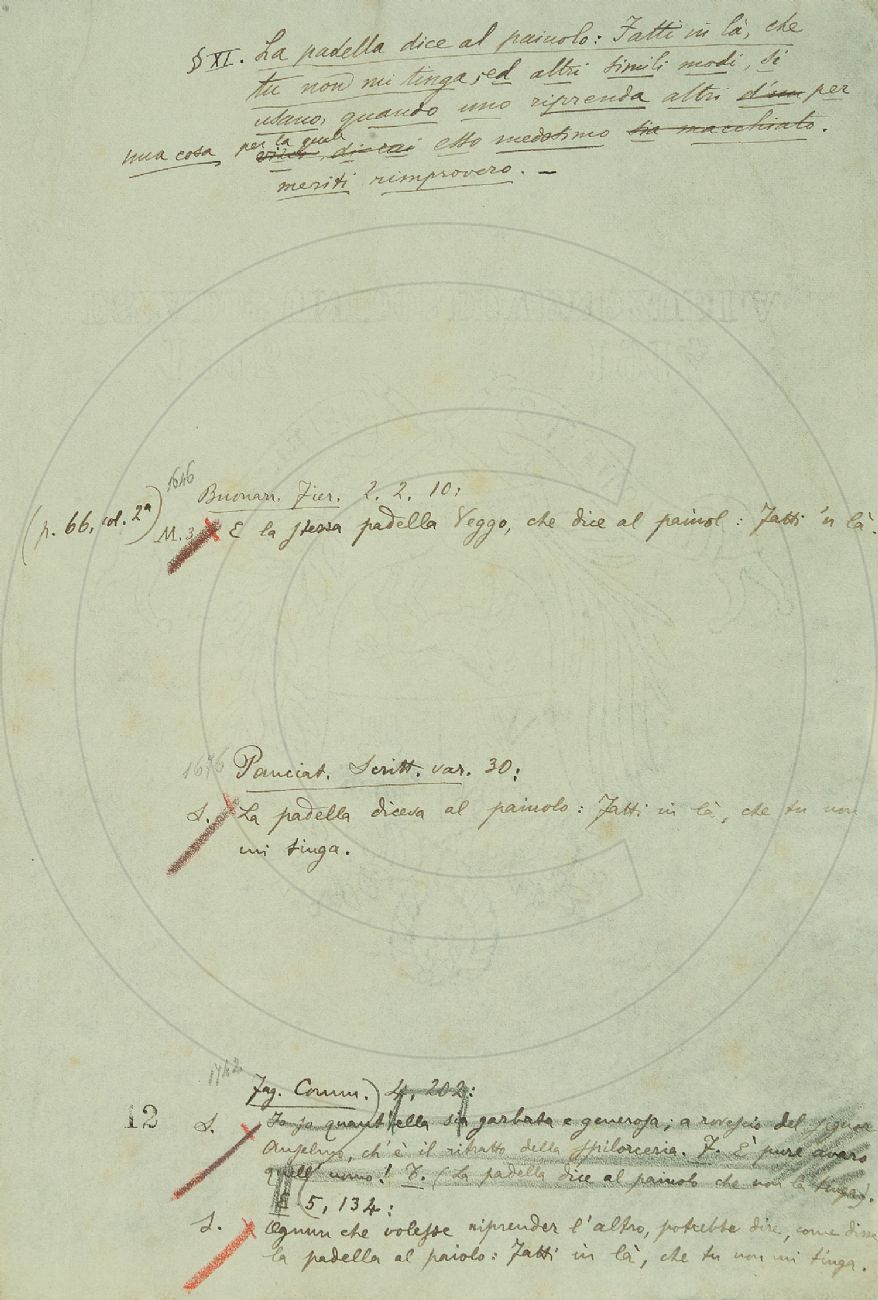 § XI. La padella dice al paiuolo: Fatti in là, che
tu non mi tinga, ed altri simili modi, si
usano, quando uno riprenda altri d'un per
una cosa, per la quale
vizio, di cui esso medesimo sia macchiato.
meriti rimprovero. –
1646
Buonarr. Fier. 2. 2. 10:
(p. 66, col. 2ª) M. 3 E la stessa padella veggo, che dice al paiuol: Fatti 'n là.
1676
Panciat. Scritt. var. 30:
S. La padella diceva al paiuolo: Fatti in là, che tu non
mi tinga.
1742
Fag. Comm. 4, 202:
12
S. Io so quant'ella sia garbata e generosa; a rovescio del signor
Anselmo, ch'è il ritratto della spilorceria. F. È pure avaro
quell'uomo! T. (La padella dice al paiuolo che non la tinga).
E 5, 134:
S. Ognun che volesse riprender l'altro, potrebbe dire, come disse
la padella al paiolo: Fatti in là, che tu non mi tinga.